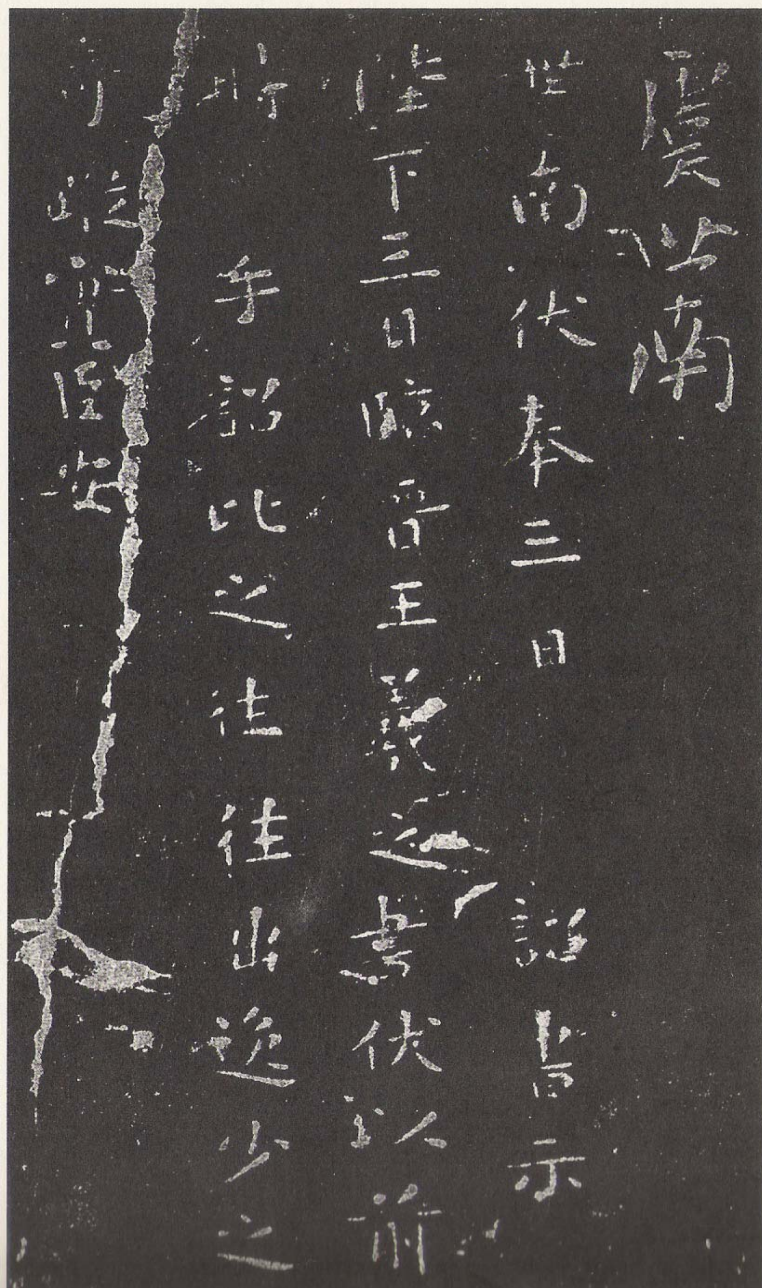 虞世南
世南伏奉三日旨示
陛下三日臨晉王羲之書伏以前
時手詔比之往往出逸少之
蹤臣